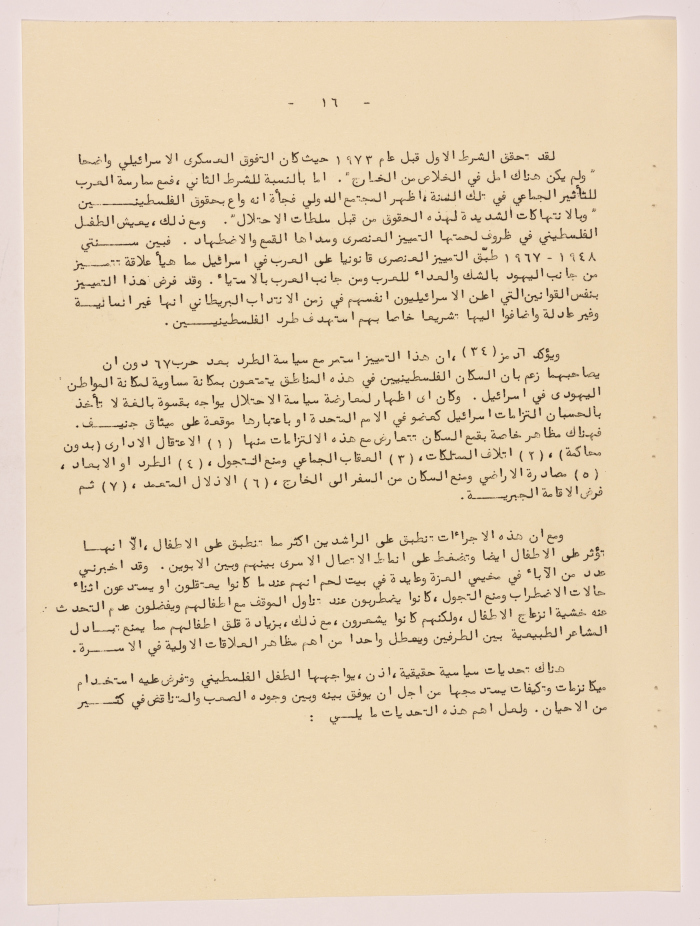 - ١٦ -
لقد تحقق الشرط الاول قبل عام ١٩٧٣ حيث كان التفوق العسكرى الاسرائيلي واضحا
"ولم يكن هناك امل في الخلاص من الخارج". اما بالنسبة للشرط الثاني ،فمع ممارسة العرب
للتأثير الجماعي في تلك السنة ،اظهر المجتمع الدولي فجأة انه واع بحقوق الفلسطينيــــــين
"وبالانتهاكات الشديدة لهذه الحقوق من قبل سلطات الاحتلال". ومع ذلك ،يعيش الطفل
الفلسطيني في ظروف لحمتها التمييز العنصرى وسداها القمع والاضطهاد. فبين سـنـــتي
١٩٤٨ - ١٩٦٧ طبّق التمييز العنصرى قانونيا على العرب في اسرائيل مما هيأ علاقة تتمـــيز
من جانب اليهود بالشك والعداء للعرب ومن جانب العرب بالاستياء. وقد فرض هذا التمييز
بنفس القوانين التي اعلن الاسرائيليون انفسهم في زمن الانتداب البريطاني انها غير انسانيـة
وغير عادلة واضافوا اليها تشريعا خاصا بهم استهدف طرد الفلسطينيـــــن.
ويؤكد آدمز (٣٤) ،ان هذا التمييز استمر مع سياسة الطرد بعد حرب ٦٧ دون ان
يصاحبهما زعم بان السكان الفلسطينيين في هذه المناطق يتمتعون بمكانة مساوية لمكانة المواطن
اليهودى في اسرائيل. وكان اى اظهار لمعارضة سياسة الاحتلال يواجه بقسوة بالغة لا تأخذ
بالحسبان التزامات اسرائيل كعضو في الامم المتحدة او باعتبارها موقعة على ميثاق جنيـــف.
فهناك مظاهر خاصة بقمع السكان تتعارض مع هذه الالتزامات منها (١) الاعتقال الادارى (بدون
محاكمة) ، (٢) اتلاف الممتلكات ، (٣) العقاب الجماعي ومنع التجول ، (٤) الطرد او الابعاد ،
(٥) مصادرة الاراضي ومنع السكان من السفر الى الخارج ، (٦) الاذلال المتعمد ، (٧) ثـم
فرض الاقامة الجبريـــة.
ومع ان هذه الاجراءات تنطبق على الراشدين اكثر مما تنطبق على الاطفال ،الّا انهـــا
تؤثر على الاطفال ايضا وتضغط على انماط الاتصال الاسرى بينهم وبين الابوين. وقد اخبرنـي
عدد من الآباء في مخيمي العزة وعايدة في بيت لحم انهم عندما كانوا يعتقلون او يستدعون اثناء
حالات الاضطراب ومنع التجول ،كانوا يضطربون عند تناول الموقف مع اطفالهم ويفضلون عدم التحدث
عنه خشية انزعاج الاطفال ،ولكنهم كانوا يشعرون ،مع ذلك ،بزيادة قلق اطفالهم مما يمنع تبـادل
المشاعر الطبيعية بين الطرفين ويعطل واحدا من اهم مظاهر العلاقات الاولية في الاســـرة.
هناك تحديات سياسية حقيقية ،اذن ،يواجهها الطفل الفلسطيني وتفرض عليه استخـدام
ميكانزمات وتكيفات يستدمجها من اجل ان يوفق بينه وبين وجوده الصعب والمتناقض في كثـــير
من الاحيان. ولعل اهم هذه التحديات ما يلـــي :